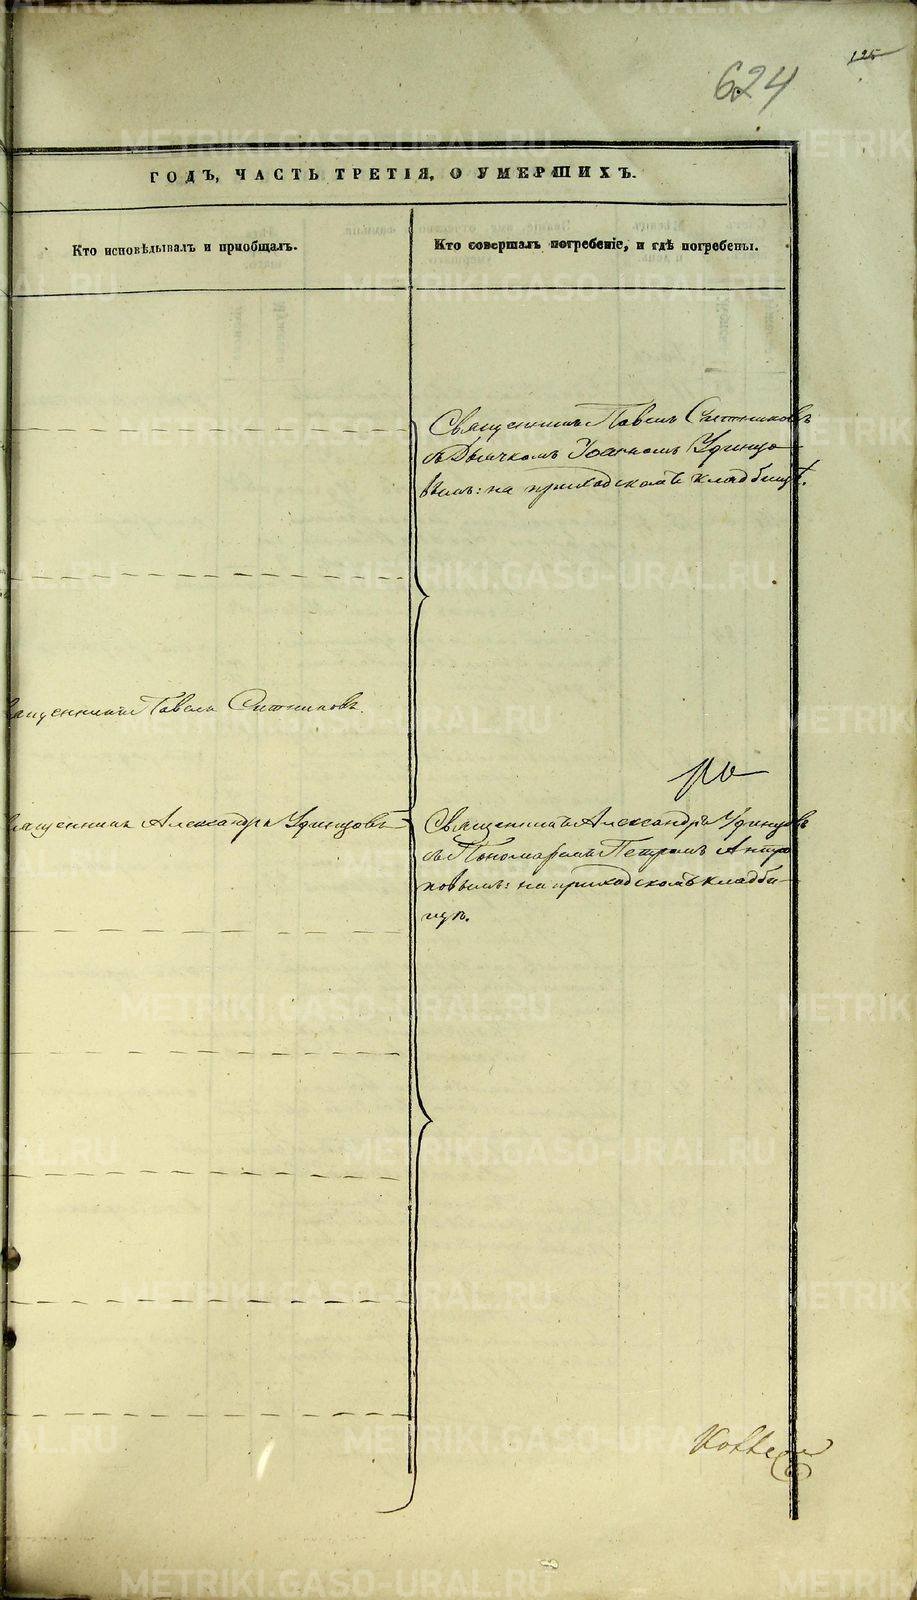 125
624
ГОДЪ, ЧАСТЬ ТРЕТІЯ, О УМЕРШИХЪ.
Кто исповѣдывалъ и приобщалъ.
Кто совершалъ погребеніе, и гдѣ погребены.
Священникъ Павелъ Ситниковъ
съ Дьячкомъ Іоанномъ Удинцо-
вымъ: на приходскомъ кладбищѣ.
вященникъ Павелъ Ситниковъ.
вященникъ Александръ Удинцовъ
Священникъ Александръ Удинцовъ
съ Пономаремъ Петромъ Антро
повымъ: на приходскомъ кладби-
щѣ.
METRIKI.GASO-URAL.RU